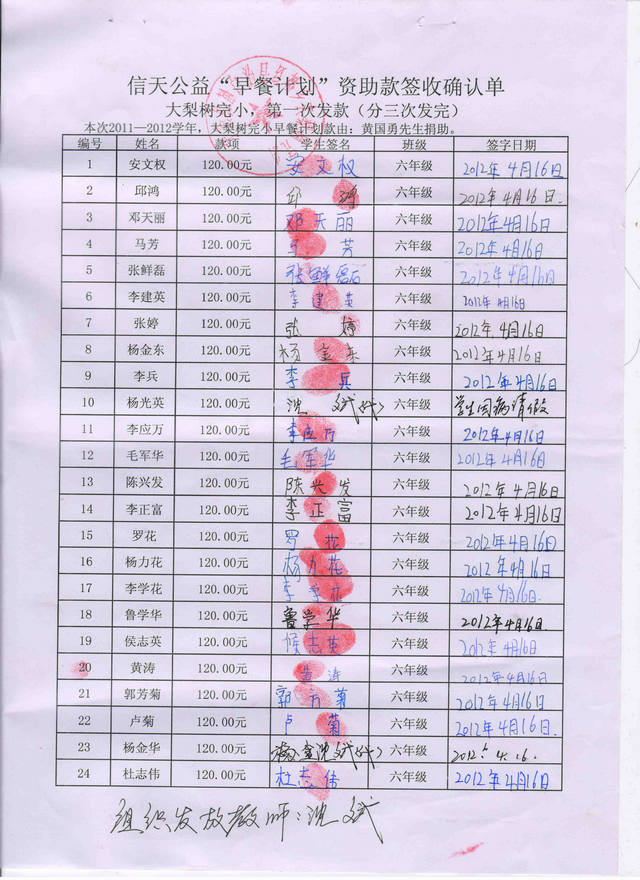 信天公益“早餐计划”资助款签收确认单
大梨树完小，第一次发款（分三次发完）
本次2011—2012学年，大梨树完小早餐计划款由：黄国勇先生捐助。
编号 姓名 款项 学生签名 班级 签字日期
1 安文权 120.00元 安文权 六年级 2012年4月16日
2 邱鸿 120.00元 邱鸿 六年级 2012年4月16日.
3 邓天丽 120.00元 邓天丽 六年级 2012年4月16日
4 马芳 120.00元 马芳 六年级 2012年4月16日
5 张鲜磊 120.00元 张鲜磊 六年级 2012年4月16日
6 李建英 120.00元 李建英 六年级 2012年4月16日
7 张婷 120.00元 张婷 六年级 2012年4月16日
8 杨金东 120.00元 杨金东 六年级 2012年4月16日
9 李兵 120.00元 李兵 六年级 2012年4月16日
10 杨光英 120.00元 沈斌(代) 六年级 学生因病请假
11 李应万 120.00元 李应万 六年级 2012年4月16日
12 毛军华 120.00元 毛军华 六年级 2012年4月16日
13 陈兴发 120.00元 陈兴发 六年级 2012年4月16日
14 李正富 120.00元 李正富 六年级 2012年4月16日
15 罗花 120.00元 罗花 六年级 2012年4月16日
16 杨力花 120.00元 杨力花 六年级 2012年4月16日
17 李学花 120.00元 李学花 六年级 2012年4月16日
18 鲁学华 120.00元 鲁学华 六年级 2012年4月16日.
19 侯志英 120.00元 侯志英 六年级 2012年4月16日
20 黄涛 120.00元 黄涛 六年级 2012年4月16日
21 郭芳菊 120.00元 郭方菊 六年级 2012年4月16日
22 卢菊 120.00元 卢菊 六年级 2012年4月16日
23 杨金华 120.00元 沈斌(代) 六年级 2012.4.16.
24 杜志伟 120.00元 杜志伟 六年级 2012年4月16日
组织发放教师：沈斌